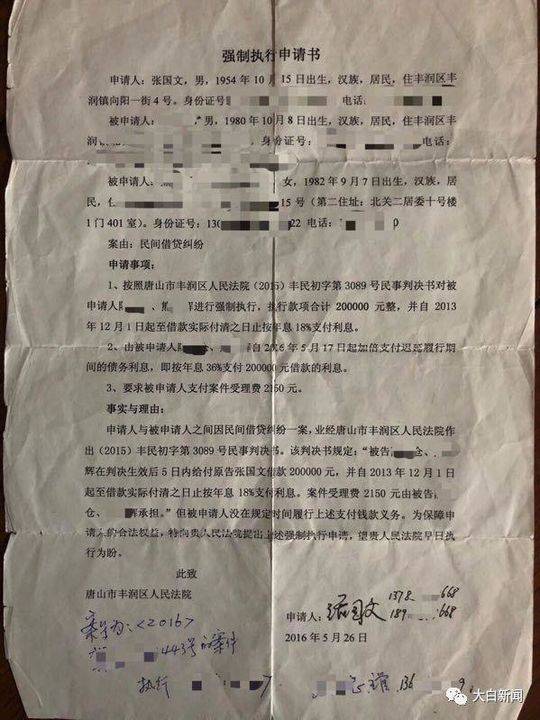 强制执行申请书
申请人：张国文，男，1954年10月15日出生，汉族，居民，住丰润区丰
润镇向阳一街4号。身份证号 电话：
被申请人： 男，1980年10月8日出生，汉族，居民，住丰润区丰
润镇 身份证号： 电话：
被申请人： 女，1982年9月7日出生，汉族，居
民，住 15号（第二住址：北关二居委十号楼
1门401室）。身份证号：130 22 电话：
案由：民间借贷纠纷
申请事项：
1、按照唐山市丰润区人民法院（2015）丰民初字第3089号民事判决书对被
申请人 、 进行强制执行，执行款项合计200000元整，并自2013
年12月1日起至借款实际付清之日止按年息18%支付利息。
2、由被申请人 、 自2016年5月17日起加倍支付迟延履行期
间的债务利息，即按年息36%支付200000元借款的利息。
3、要求被申请人支付案件受理费2150元。
事实与理由：
申请人与被申请人之间因民间借贷纠纷一案，业经唐山市丰润区人民法院作
出（2015）丰民初字第3089号民事判决书。该判决书规定：“被告 仓、
辉在判决生效后5日内给付原告张国文借款200000元，并自2013年12月1日
起至借款实际付清之日止按年息18%支付利息。案件受理费2150元由被告
仓、 辉承担。”但被申请人没在规定时间履行上述支付钱款义务。为保障申
请人的合法权益，特向贵人民法院提出上述强制执行申请，望贵人民法院早日执
行为盼。
此致
唐山市丰润区人民法院
申请人：张国文 1378 668
189 668
2016年5月26日
案号为：<2016>
443号的案件
执行 136 9
大白新闻